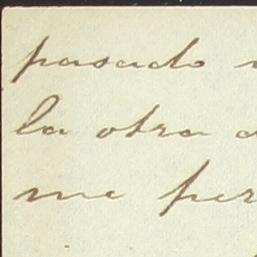 pasado
la otra
me per